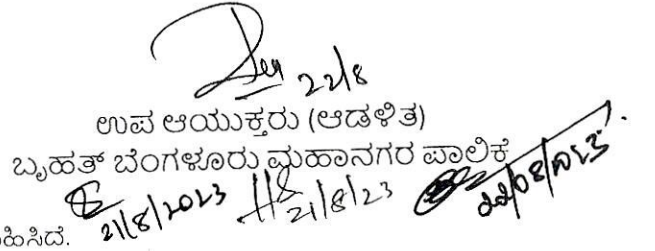 22/8
ಉಪ ಆಯುಕ್ತರು (ಆಡಳಿತ)
ಬೃಹತ್ ಬೆಂಗಳೂರು ಮಹಾನಗರ ಪಾಲಿಕೆ
21/8/2023 21/8/23 22/08/2023
ಹಿಸಿದೆ.